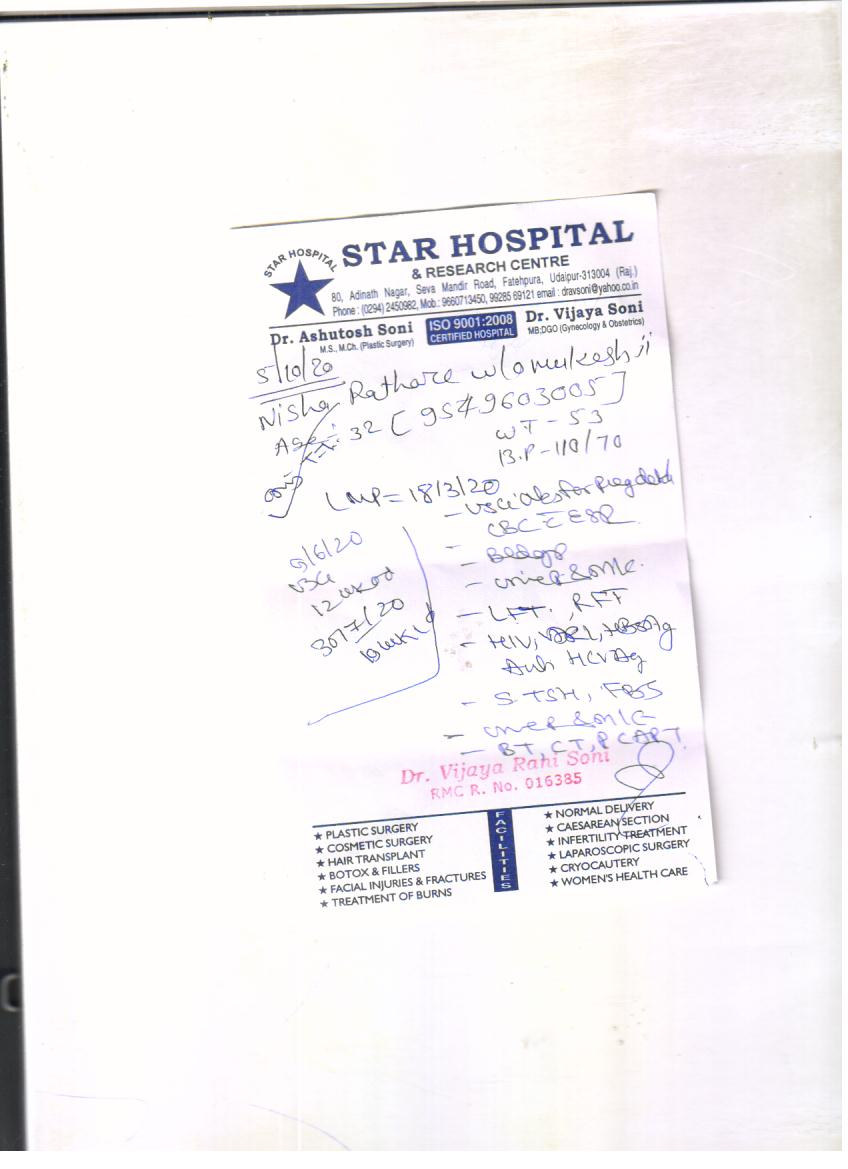 STAR HOSPITAL
STAR HOSPITAL
& RESEARCH CENTRE
80, Adinath Nagar, Seva Mandir Road, Fatehpura, Udaipur-313004 (Raj.)
Phone : (0294) 2450982, Mob.: 9660713450, 99285 69121 email : dravsoni@yahoo.co.in
Dr. Ashutosh Soni
M.S., M.Ch. (Plastic Surgery)
ISO 9001:2008
CERTIFIED HOSPITAL
Dr. Vijaya Soni
MB:DGO (Gynecology & Obstetrics)
5/10/20
Nisha Rathore w/o mukesh ji
Age: 32 [9549603005]
WT - 53
B.P - 110/70
LMP = 18/3/20
- USG Obs for Preg
- CBC ESR
- Bld gp
- LFT, RFT
- HIV, VDRL, HBSAg
HCV Ag
- S. TSH, FBS
- BT, CT, P
9/6/20
USG
12
30/7/20
Dr. Vijaya Rahi Soni
RMC R. No. 016385
FACILITIES
★ PLASTIC SURGERY
★ COSMETIC SURGERY
★ HAIR TRANSPLANT
★ BOTOX & FILLERS
★ FACIAL INJURIES & FRACTURES
★ TREATMENT OF BURNS
★ NORMAL DELIVERY
★ CAESAREAN SECTION
★ INFERTILITY TREATMENT
★ LAPAROSCOPIC SURGERY
★ CRYOCAUTERY
★ WOMEN'S HEALTH CARE